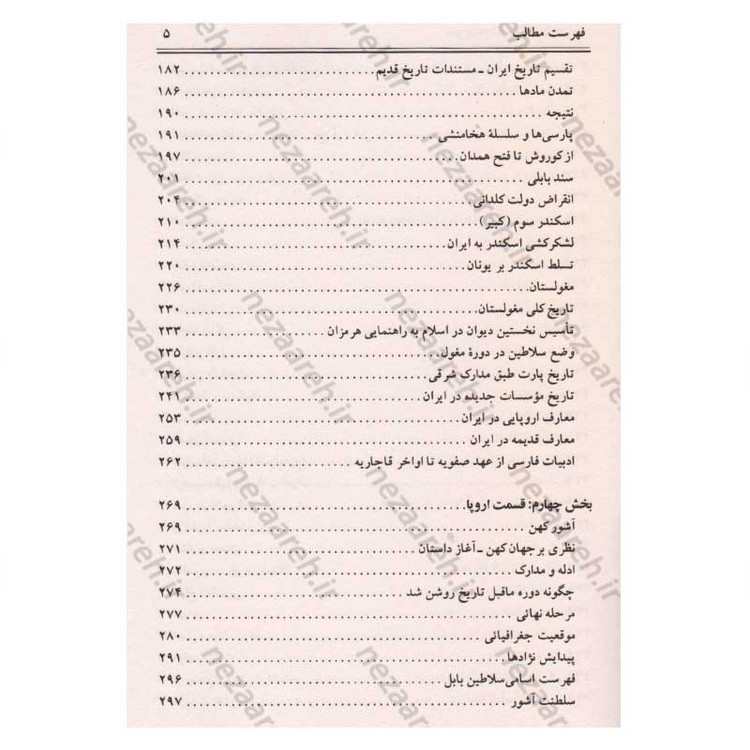 فهرست مطالب ۵
تقسیم تاریخ ایران ـ مستندات تاریخ قدیم ۱۸۲
تمدن مادها ۱۸۶
نتیجه ۱۹۰
پارسی‌ها و سلسلهٔ هخامنشی ۱۹۱
از کوروش تا فتح همدان ۱۹۷
سند بابلی ۲۰۱
انقراض دولت کلدانی ۲۰۴
اسکندر سوم (کبیر) ۲۱۰
لشکرکشی اسکندر به ایران ۲۱۴
تسلط اسکندر بر یونان ۲۲۰
مغولستان ۲۲۶
تاریخ کلی مغولستان ۲۳۰
تأسیس نخستین دیوان در اسلام به راهنمایی هرمزان ۲۳۳
وضع سلاطین در دورهٔ مغول ۲۳۵
تاریخ پارت طبق مدارک شرقی ۲۳۶
تاریخ مؤسسات جدیده در ایران ۲۴۱
معارف اروپایی در ایران ۲۵۳
معارف قدیمه در ایران ۲۵۹
ادبیات فارسی از عهد صفویه تا اواخر قاجاریه ۲۶۲
بخش چهارم: قسمت اروپا ۲۶۹
آشور کهن ۲۶۹
نظری بر جهان کهن ـ آغاز داستان ۲۷۱
ادله و مدارک ۲۷۲
چگونه دوره ماقبل تاریخ روشن شد ۲۷۴
مرحله نهائی ۲۷۷
موقعیت جغرافیائی ۲۸۰
پیدایش نژادها ۲۹۱
فهرست اسامی سلاطین بابل ۲۹۶
سلطنت آشور ۲۹۷
nezaareh.ir